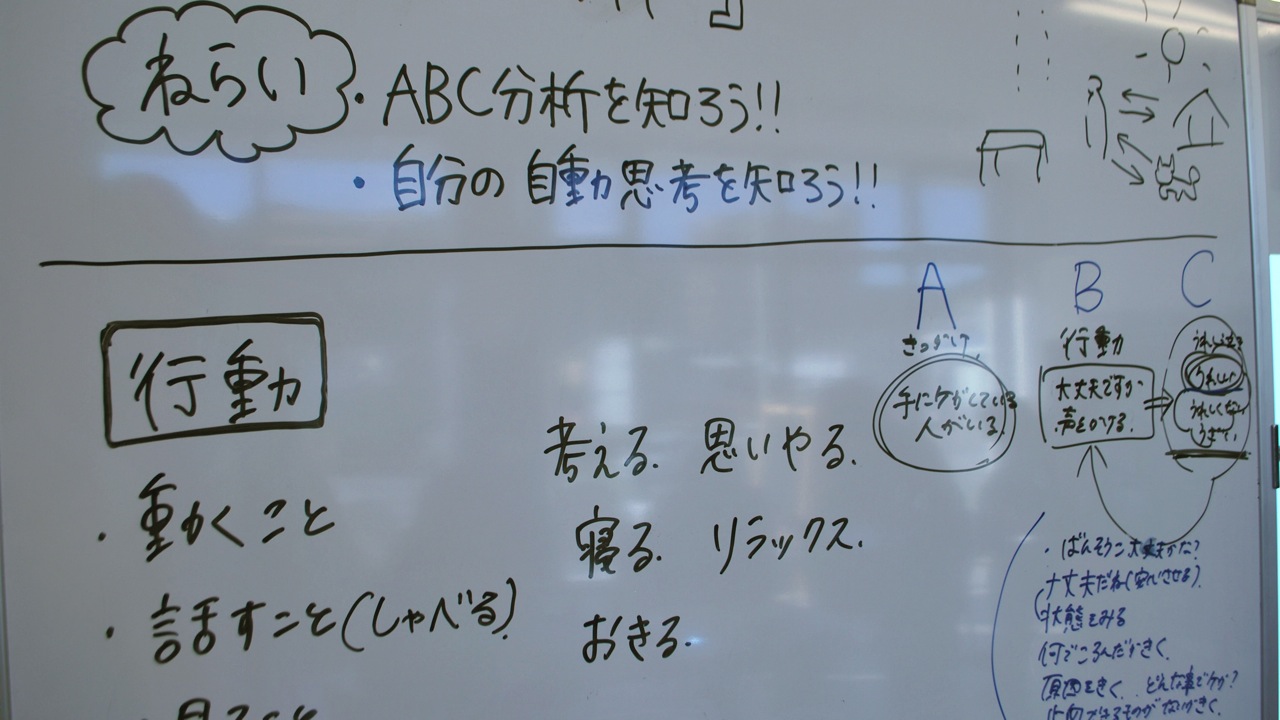 ねらい
・ABC分析を知ろう!!
・自分の自動思考を知ろう!!
行動
・動くこと
・話すこと(しゃべる)
・見ること
考える. 思いやる.
寝る. リラックス.
おきる.
A B C
きっかけ
行動
手にケガしている
人がいる
大丈夫ですか
声をかける.
うれしい
うれしくない
うざい
・ばんそうこ大丈夫かな?
大丈夫だね(安心させる)
状態をみる
何でころんだかきく.
原因をきく. どんな事でケガ?